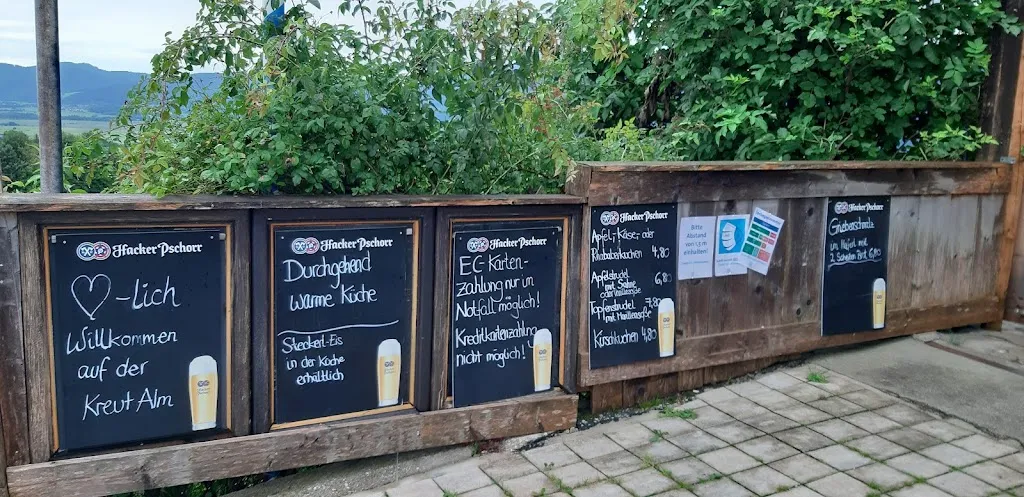 Hacker-Pschorr
♡-lich
Willkommen
auf der
Kreut Alm
Hacker-Pschorr
Durchgehend
warme Küche
Steckerl-Eis
in der Küche
erhältlich
Hacker-Pschorr
EC-Karten-
zahlung nur in
Notfall möglich!
Kreditkartenzahlung
nicht möglich!
Hacker-Pschorr
Apfel-, Käse- oder
Rhabarberkuchen 4,80
Apfelstrudel 6,80
mit Sahne
oder Vanillesoße
Topfenstrudel 7,80
mit Vanillesoße
Kirschkuchen 4,80
Bitte
Abstand
von 1,5 m
einhalten!
Hacker-Pschorr
Griebenschmalz
im Haferl mit
2 Scheiben Brot 6,80